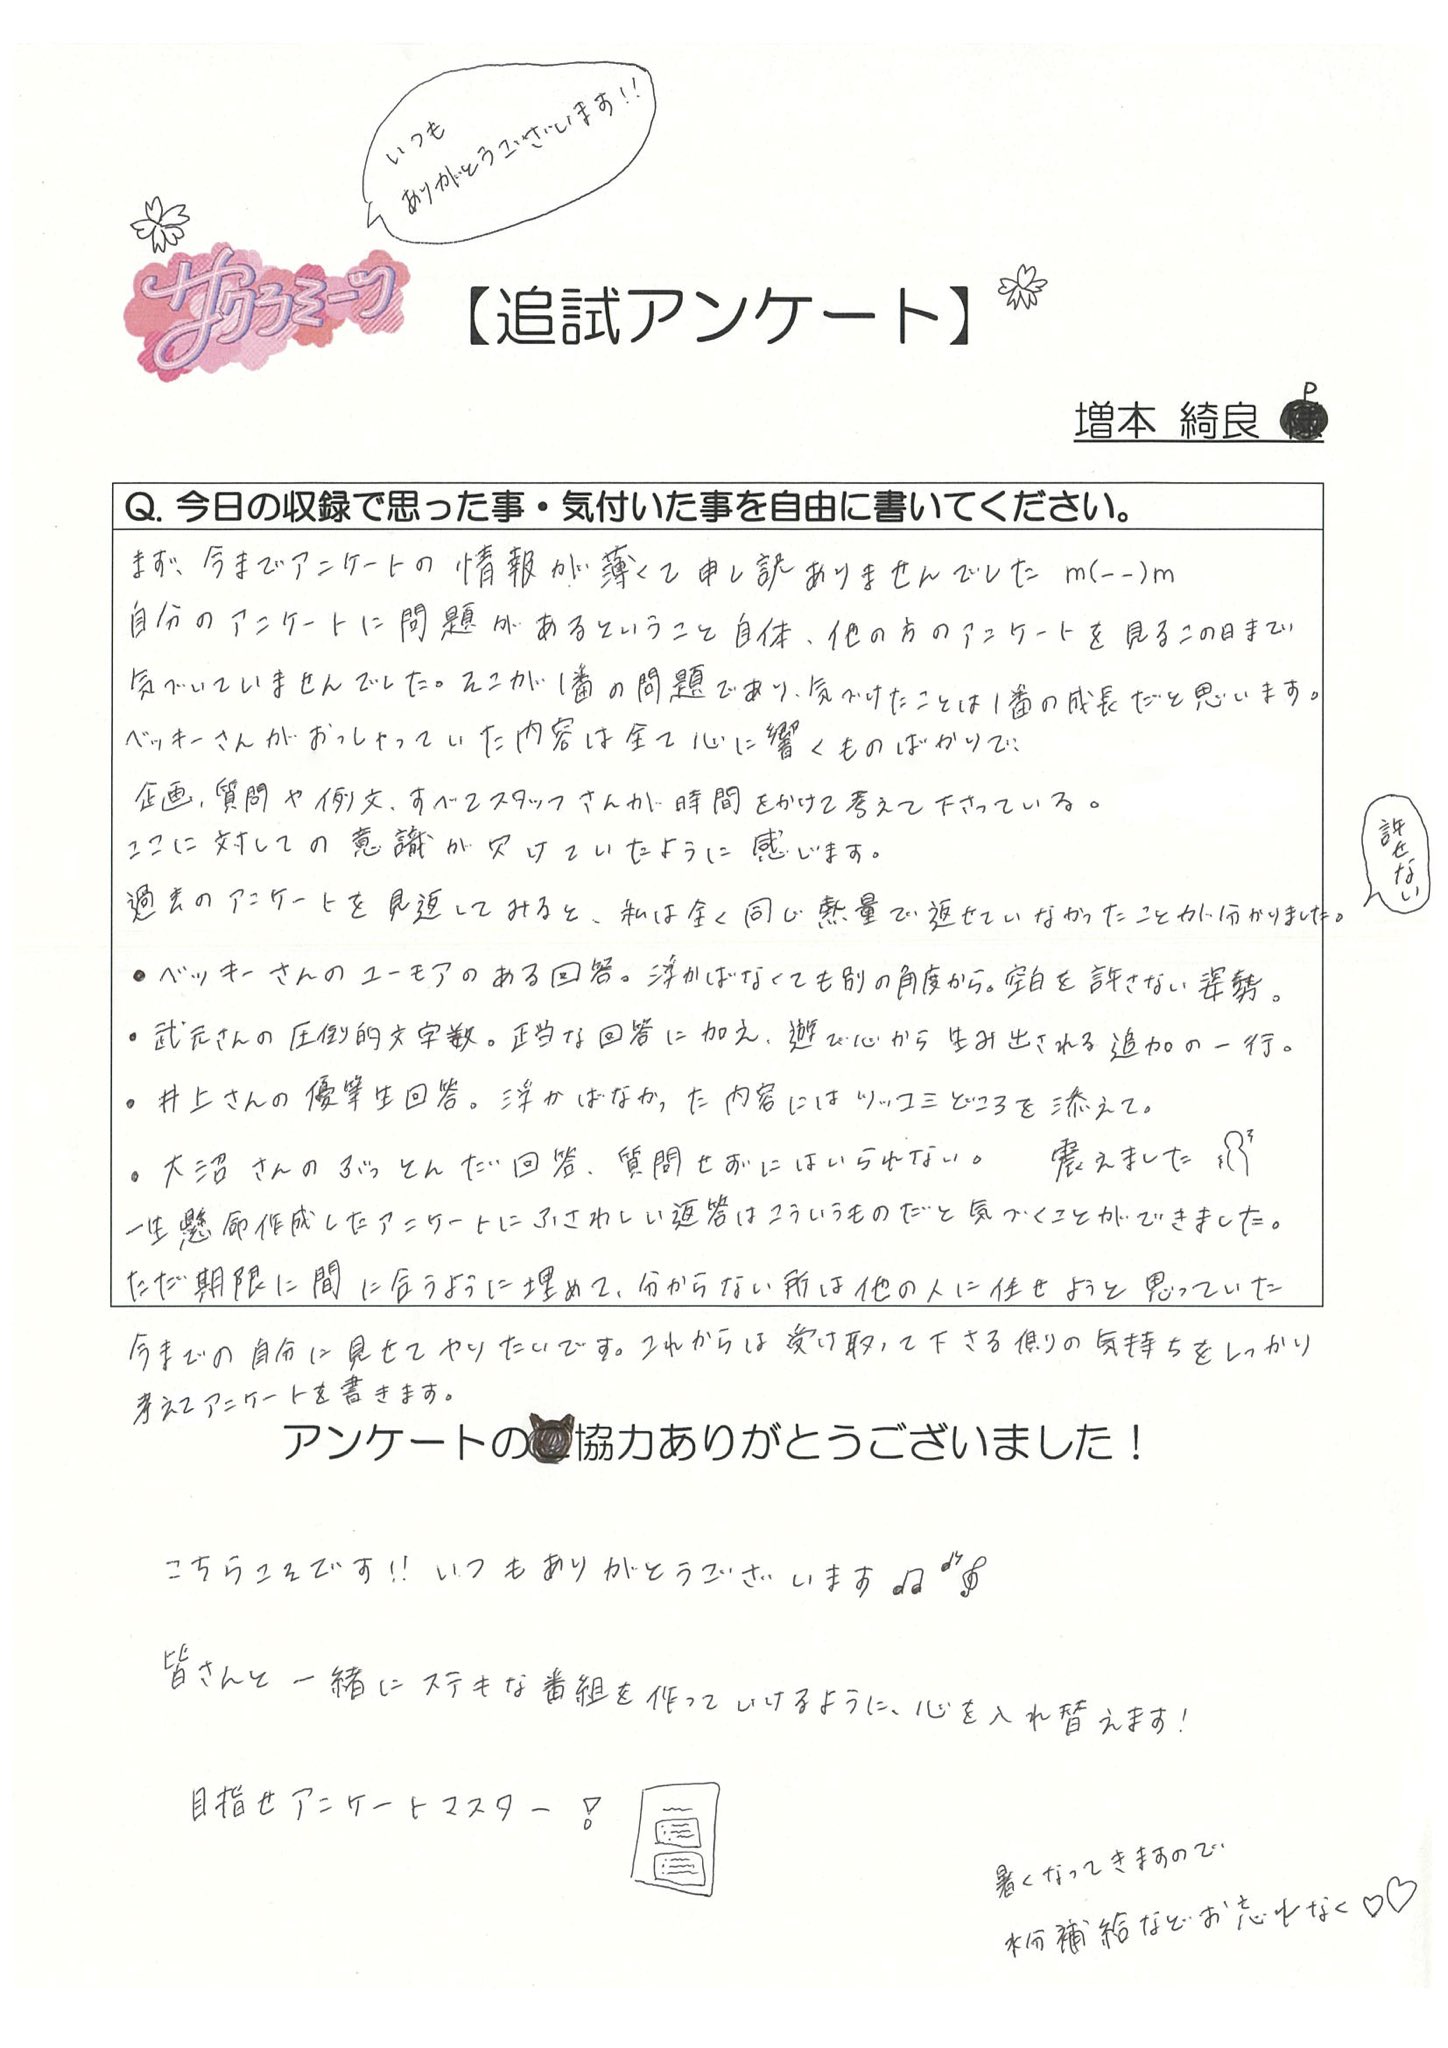 いつも
ありがとうございます!!
サクラミーツ
【追試アンケート】
増本 綺良
P
Q. 今日の収録で思った事・気付いた事を自由に書いてください。
まず、今までアンケートの情報が薄くて申し訳ありませんでした m(--)m
自分のアンケートに問題があるということ自体、他の方のアンケートを見るこの日まで
気づいていませんでした。そこが1番の問題であり、気づけたことは1番の成長だと思います。
ベッキーさんがおっしゃっていた内容は全て心に響くものばかりで、
企画、質問や例文、すべてスタッフさんが時間をかけて考えて下さっている。
ここに対しての意識が欠けていたように感じます。
許せない
過去のアンケートを見返してみると、私は全く同じ熱量で返せていなかったことが分かりました。
• ベッキーさんのユーモアのある回答。浮かばなくても別の角度から。空白を許さない姿勢。
• 武元さんの圧倒的文字数。正当な回答に加え、遊び心から生み出される追加の一行。
• 井上さんの優等生回答。浮かばなかった内容にはツッコミどころを添えて。
• 大沼さんのぶっとんだ回答、質問せずにはいられない。 震えました
一生懸命作成したアンケートにふさわしい返答はこういうものだと気づくことができました。
ただ期限に間に合うように埋めて、分からない所は他の人に任せようと思っていた
今までの自分に見せてやりたいです。これからは受け取って下さる側の気持ちをしっかり
考えてアンケートを書きます。
アンケートの協力ありがとうございました！
こちらこそです!! いつもありがとうございます♫♪
皆さんと一緒にステキな番組を作っていけるように、心を入れ替えます!
目指せアンケートマスター!
暑くなってきますので
水分補給などお忘れなく♡♡